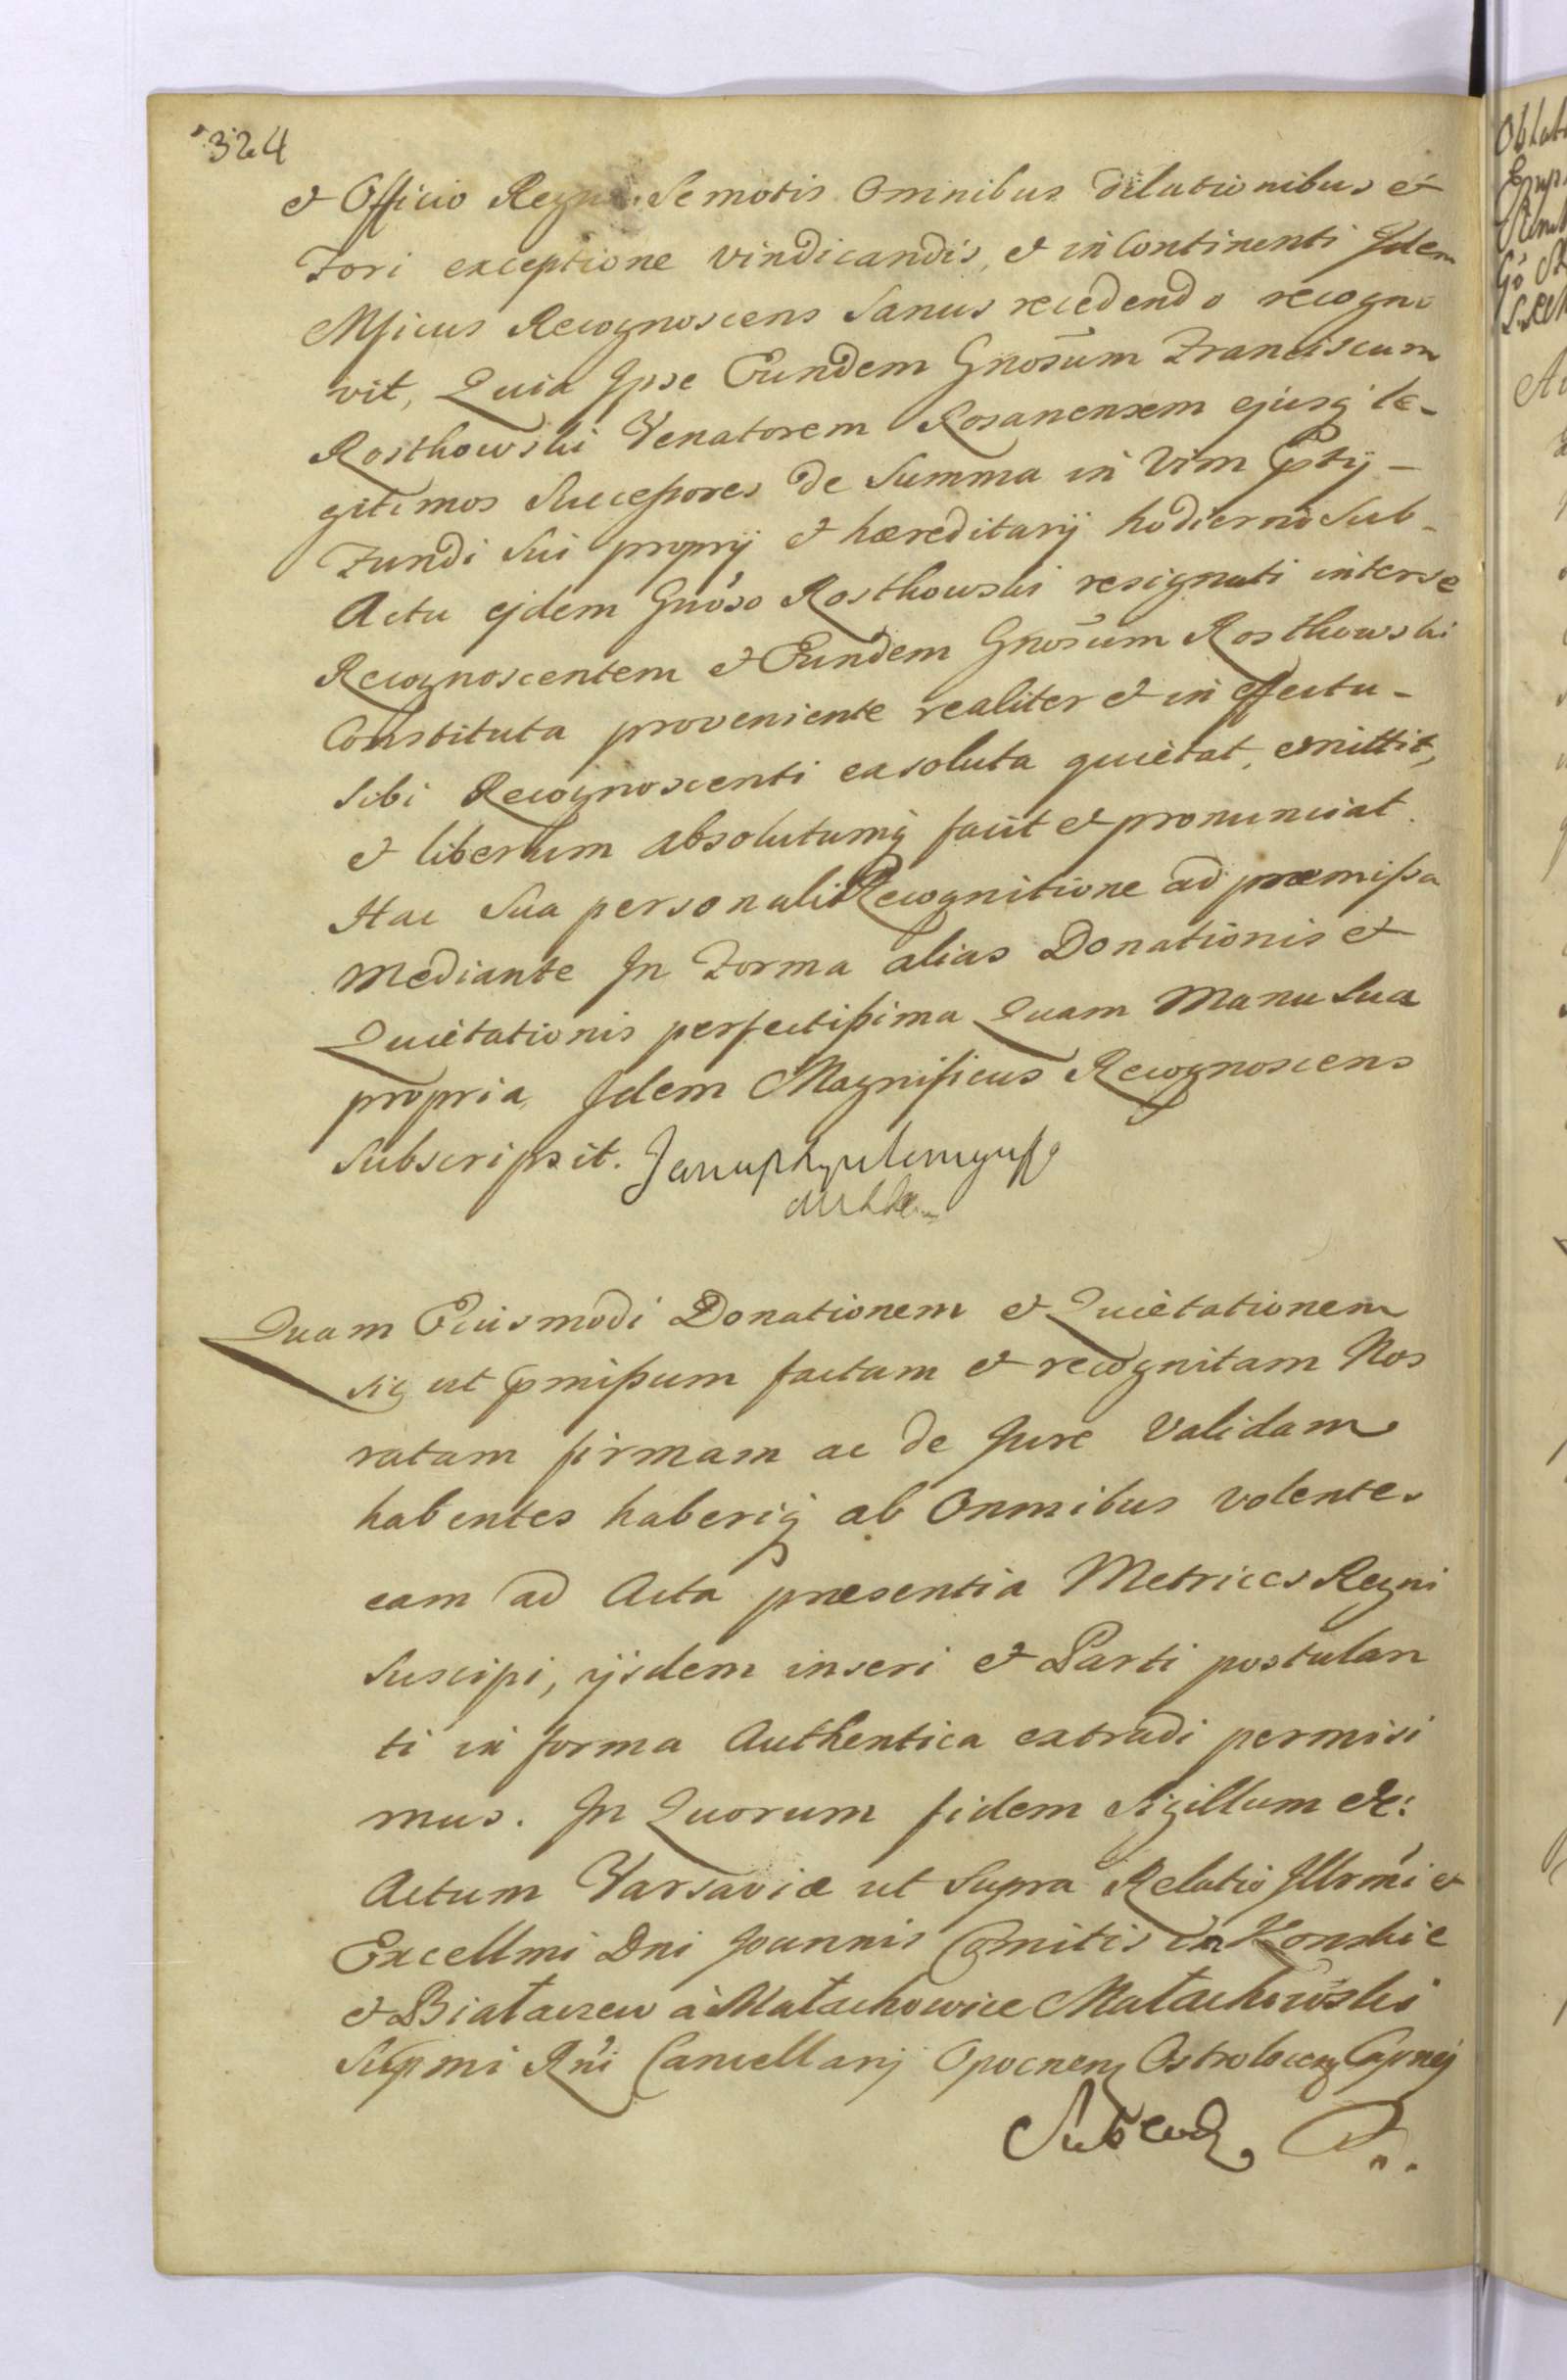 324
& Officio Regni Semotis Omnibus dilationibus &
Fori exceptione vindicandis, & in Continenti Idem
Mficus Recognoscens Sanus recedendo recogno
vit, Quia Ipse Eundem Gnosum Franciscum
Rosthowski Venatorem Rosanensem ejusq le-
gitimos Successores de Summa in Vim Ptij
Fundi Sui proprij & hæreditarij hodierno Sub-
Actu ejdem Gnoso Rosthowski resignati inter se
Recognoscentem & Eundem Gnosum Rosthowski
Constituta proveniente realiter & in effectu
Sibi Recognoscenti exsoluta quietat, emittit,
& liberum absolutumq facit & pronunciat.
Hac Sua personali Recognitione ad præmissa
Mediante In Forma alias Donationis &
Quietationis perfectissima Quam Manu Sua
propria Idem Magnificus Recognoscens
Subscripsit.
Quam Eiusmodi Donationem & Quietationem
sic ut pmissum factam & recognitam Nos
ratam firmam ac de Jure Validam
habentes haberiq ab Omnibus volentes
eam ad Acta præsentia Metrices Regni
Suscipi, ijsdem inseri & Parti postulan
ti in forma Authentica extradi permisi
mus. In Quorum fidem Sigillum &c:
Actum Varsaviæ ut Supra Relatio Illrmi &
Excellmi Dni Joannis Comitis in Konskie
& Białaczew à Małachowice Małachowski
Supmi Rni Cancellarij Opocnen Ostrolecen Capnej